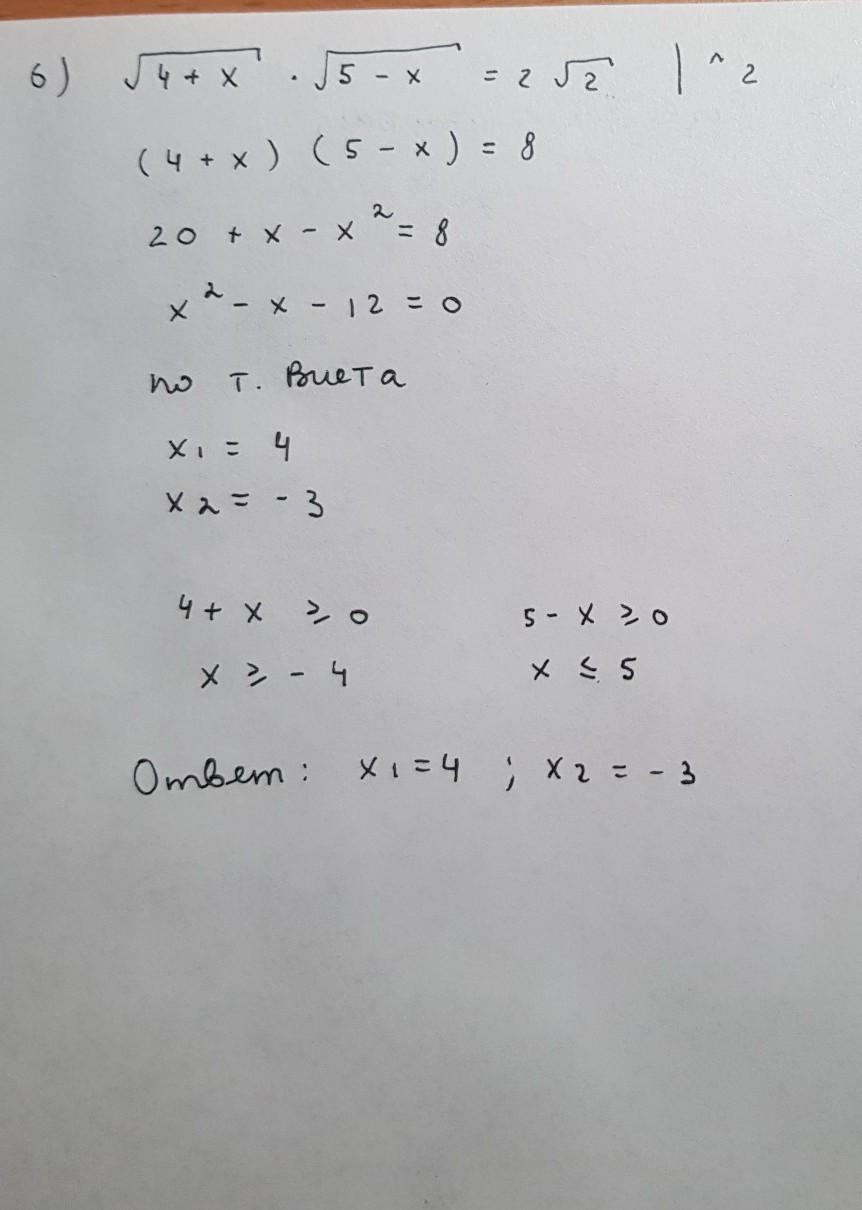 6) √(4 + x) · √(5 - x) = 2 √2 | ^ 2
(4 + x) (5 - x) = 8
20 + x - x² = 8
x² - x - 12 = 0
по т. Виета
x₁ = 4
x₂ = - 3
4 + x ≥ 0 5 - x ≥ 0
x ≥ - 4 x ≤ 5
Ответ: x₁ = 4 ; x₂ = - 3